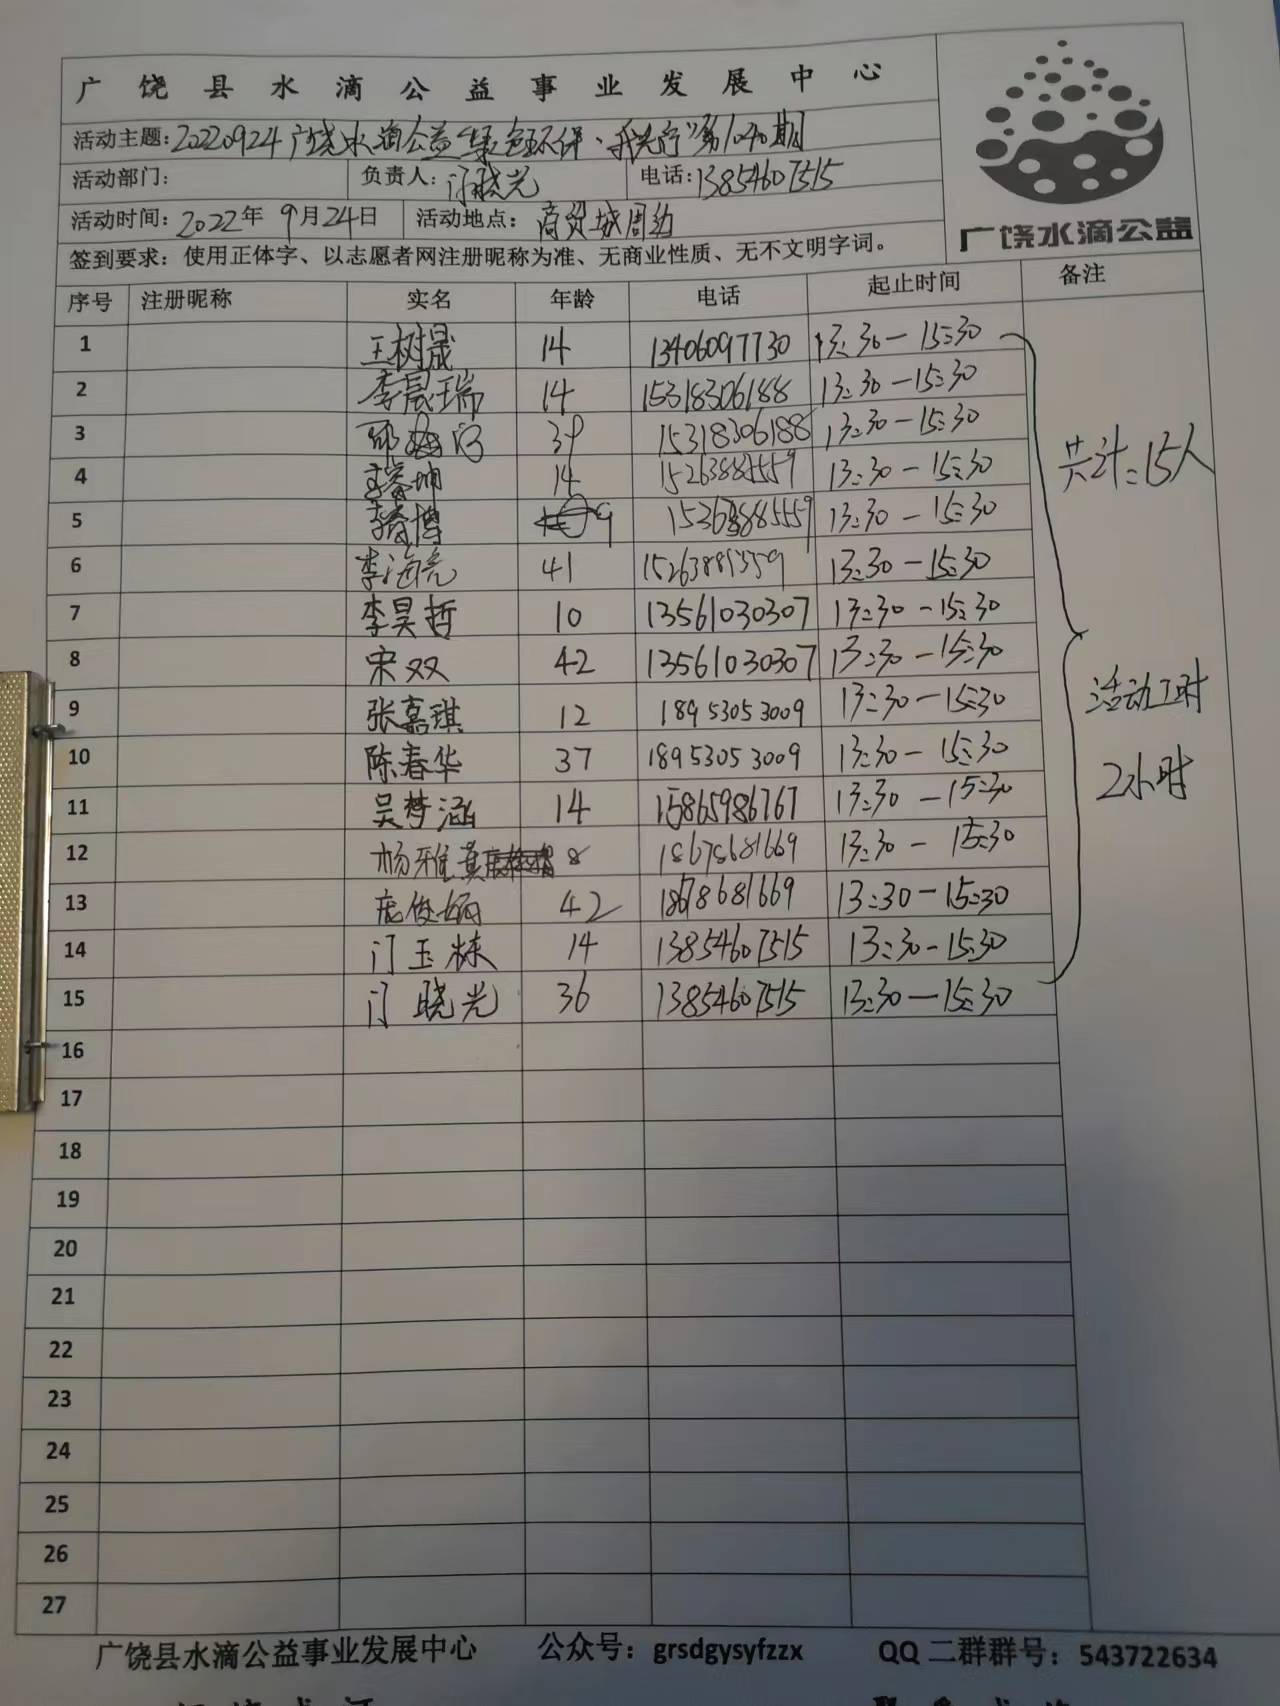 广饶县水滴公益事业发展中心
活动主题:20220924广饶水滴公益“绿色环保·我先行”第1040期
活动部门: 负责人:门晓光 电话:13854607515
活动时间:2022年9月24日 活动地点:商贸城周边
广饶水滴公益
签到要求:使用正体字、以志愿者网注册昵称为准、无商业性质、无不文明字词。
序号 注册昵称 实名 年龄 电话 起止时间 备注
1 王树晟 14 13406097730 13:30-15:30
2 李晨瑞 14 15318306188 13:30-15:30
3 邱 39 15318306188 13:30-15:30
共计:15人
4 李睿坤 14 15263885559 13:30-15:30
5 李睿博 9 13:30-15:30
6 李海亮 41 15263885559 13:30-15:30
7 李昊哲 10 13561030307 13:30-15:30
8 宋双 42 13561030307 13:30-15:30
活动工时
9 张嘉琪 12 18953053009 13:30-15:30
10 陈春华 37 18953053009 13:30-15:30
2小时
11 吴梦涵 14 15865986767 13:30-15:30
12 杨雅 8 18678681669 13:30-15:30
13 庞俊娟 42 18678681669 13:30-15:30
14 门玉栋 14 13854607515 13:30-15:30
15 门晓光 36 13854607515 13:30-15:30
16
17
18
19
20
21
22
23
24
25
26
27
广饶县水滴公益事业发展中心 公众号:grsdgysyfzzx QQ二群群号:543722634